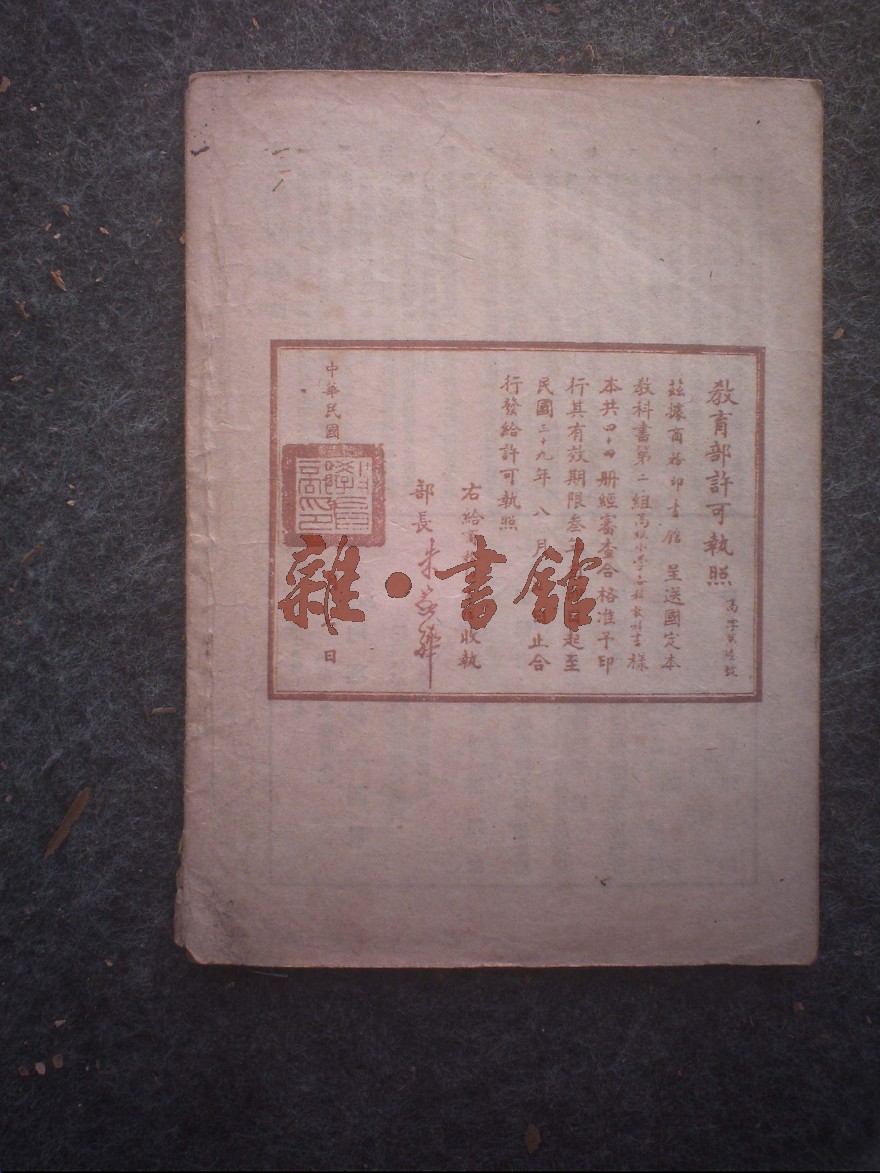 教育部許可執照
茲據商務印書館呈送國定本
教科書第二組高級小學各科教科書樣
本共四十四册經審查合格准予印
行其有效期限叁年起至
民國三十九年八月止合
行發給許可執照
右給商收執
部長朱家驊
中華民國日
教育部印
雜·書館